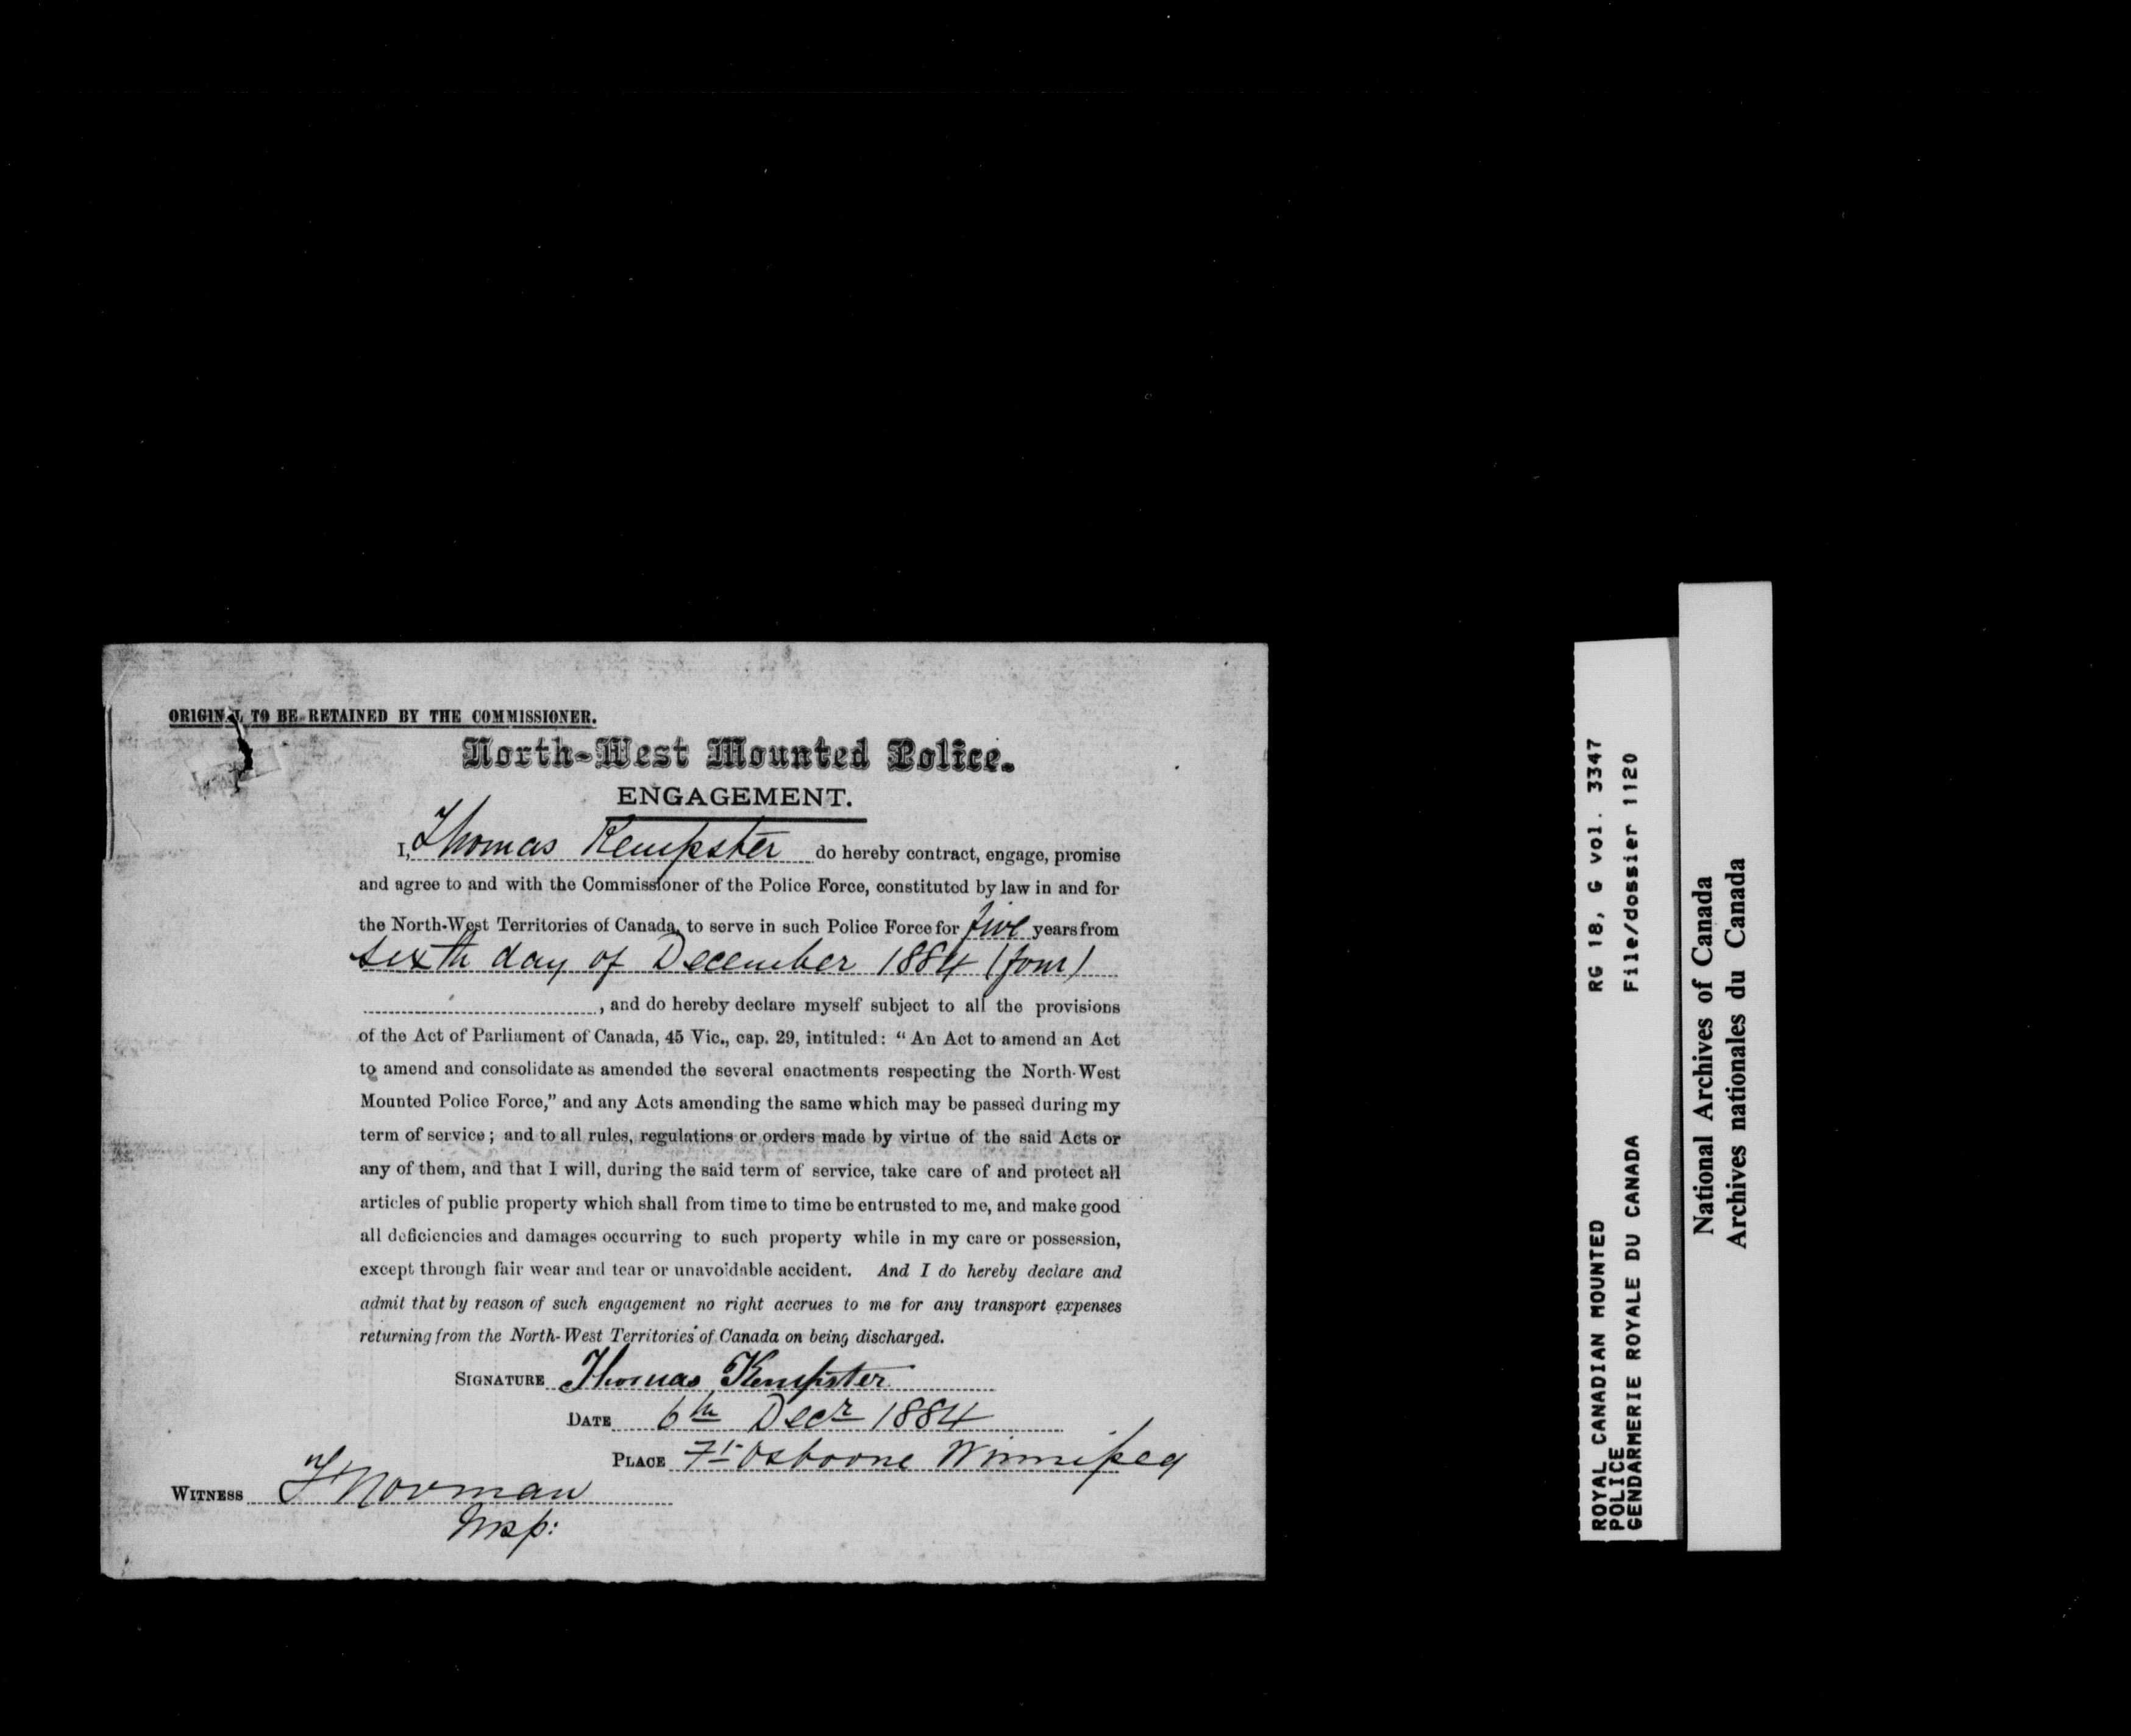 ORIGINAL TO BE RETAINED BY THE COMMISSIONER.
North-West Mounted Police.
ENGAGEMENT.
I, Thomas Kempster do hereby contract, engage, promise
and agree to and with the Commissioner of the Police Force, constituted by law in and for
the North-West Territories of Canada, to serve in such Police Force for five years from
sixth day of December 1884 (four)
, and do hereby declare myself subject to all the provisions
of the Act of Parliament of Canada, 45 Vic., cap. 29, intituled: “ An Act to amend an Act
to amend and consolidate as amended the several enactments respecting the North-West
Mounted Police Force,” and any Acts amending the same which may be passed during my
term of service ; and to all rules, regulations or orders made by virtue of the said Acts or
any of them, and that I will, during the said term of service, take care of and protect all
articles of public property which shall from time to time be entrusted to me, and make good
all deficiencies and damages occurring to such property while in my care or possession,
except through fair wear and tear or unavoidable accident. And I do hereby declare and
admit that by reason of such engagement no right accrues to me for any transport expenses
returning from the North-West Territories of Canada on being discharged.
SIGNATURE Thomas Kempster
DATE 6th Decr 1884
PLACE Ft Osborne Winnipeg
WITNESS F Norman
Insp:
ROYAL CANADIAN MOUNTED RG 18, G vol. 3347
POLICE File/dossier 1120
GENDARMERIE ROYALE DU CANADA
National Archives of Canada
Archives nationales du Canada